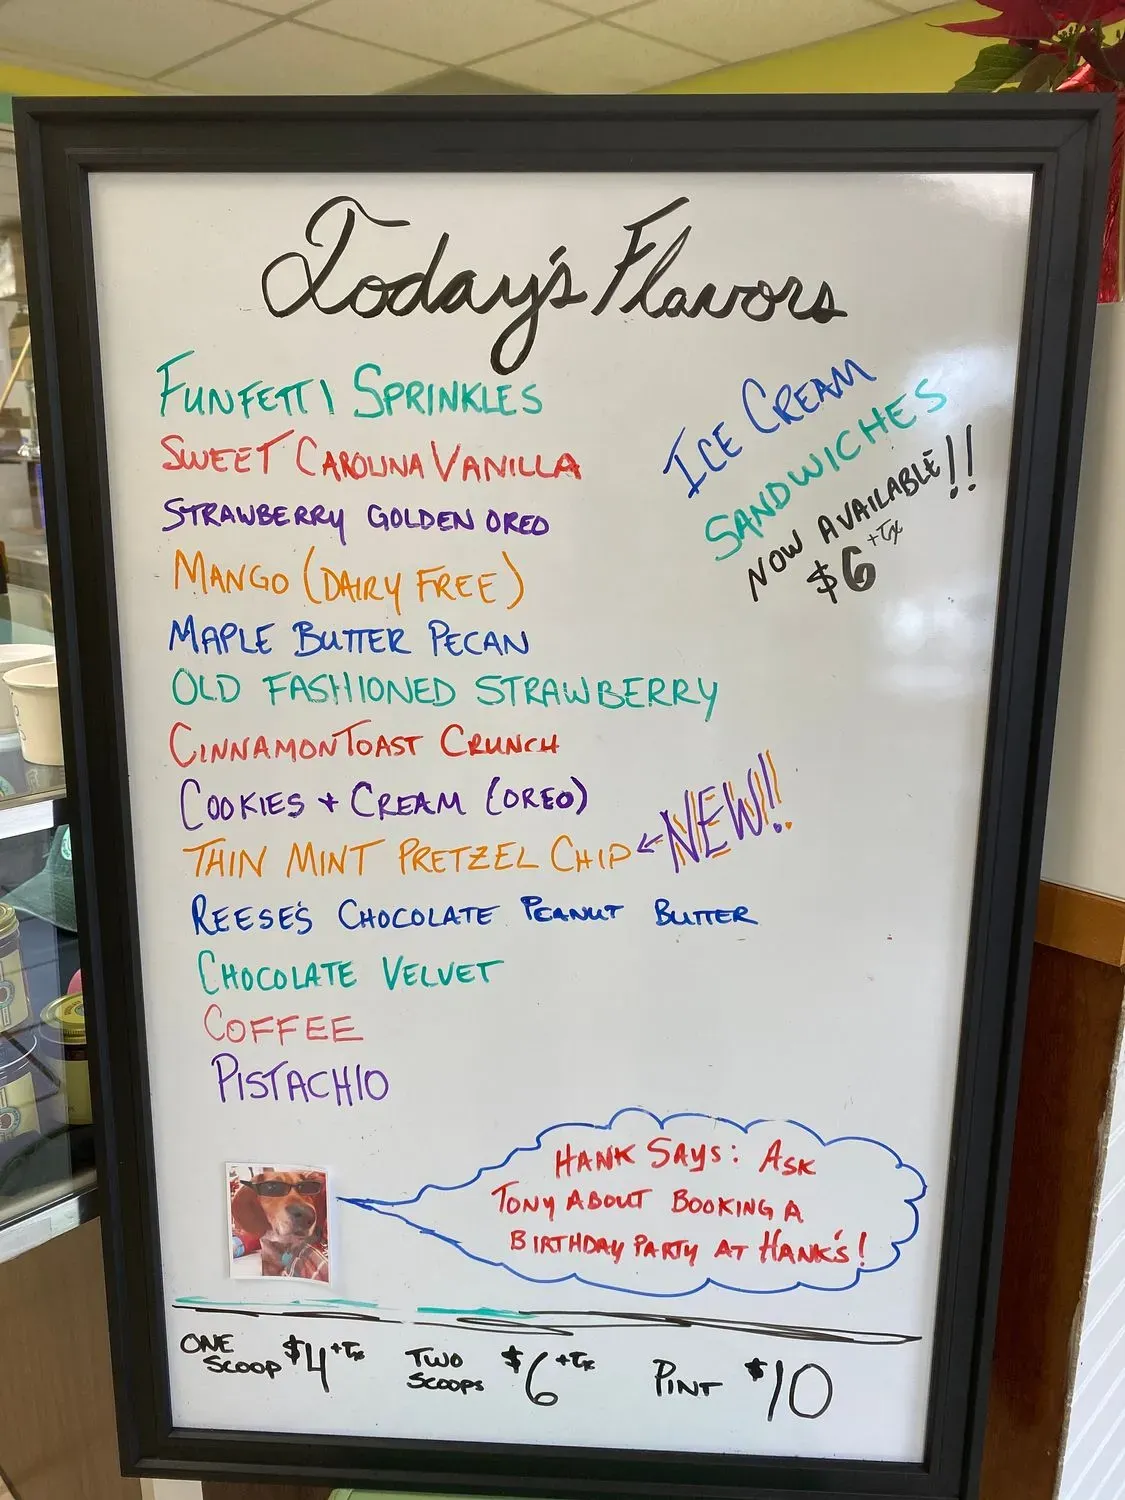 Today's Flavors
FUNFETTI SPRINKLES
SWEET CAROLINA VANILLA
STRAWBERRY GOLDEN OREO
MANGO (DAIRY FREE)
MAPLE BUTTER PECAN
OLD FASHIONED STRAWBERRY
CINNAMON TOAST CRUNCH
COOKIES + CREAM (OREO)
THIN MINT PRETZEL CHIP ← NEW!!
REESE'S CHOCOLATE PEANUT BUTTER
CHOCOLATE VELVET
COFFEE
PISTACHIO
ICE CREAM
SANDWICHES
NOW AVAILABLE!!
$6 +Tx
HANK SAYS: ASK
TONY ABOUT BOOKING A
BIRTHDAY PARTY AT HANK'S!
ONE SCOOP $4 +Tx
TWO SCOOPS $6 +Tx
PINT $10